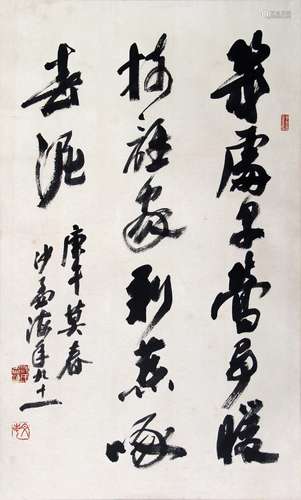 幾處早鶯爭暖
樹誰家新燕啄
春泥
庚午莫春
沙孟海年九十一